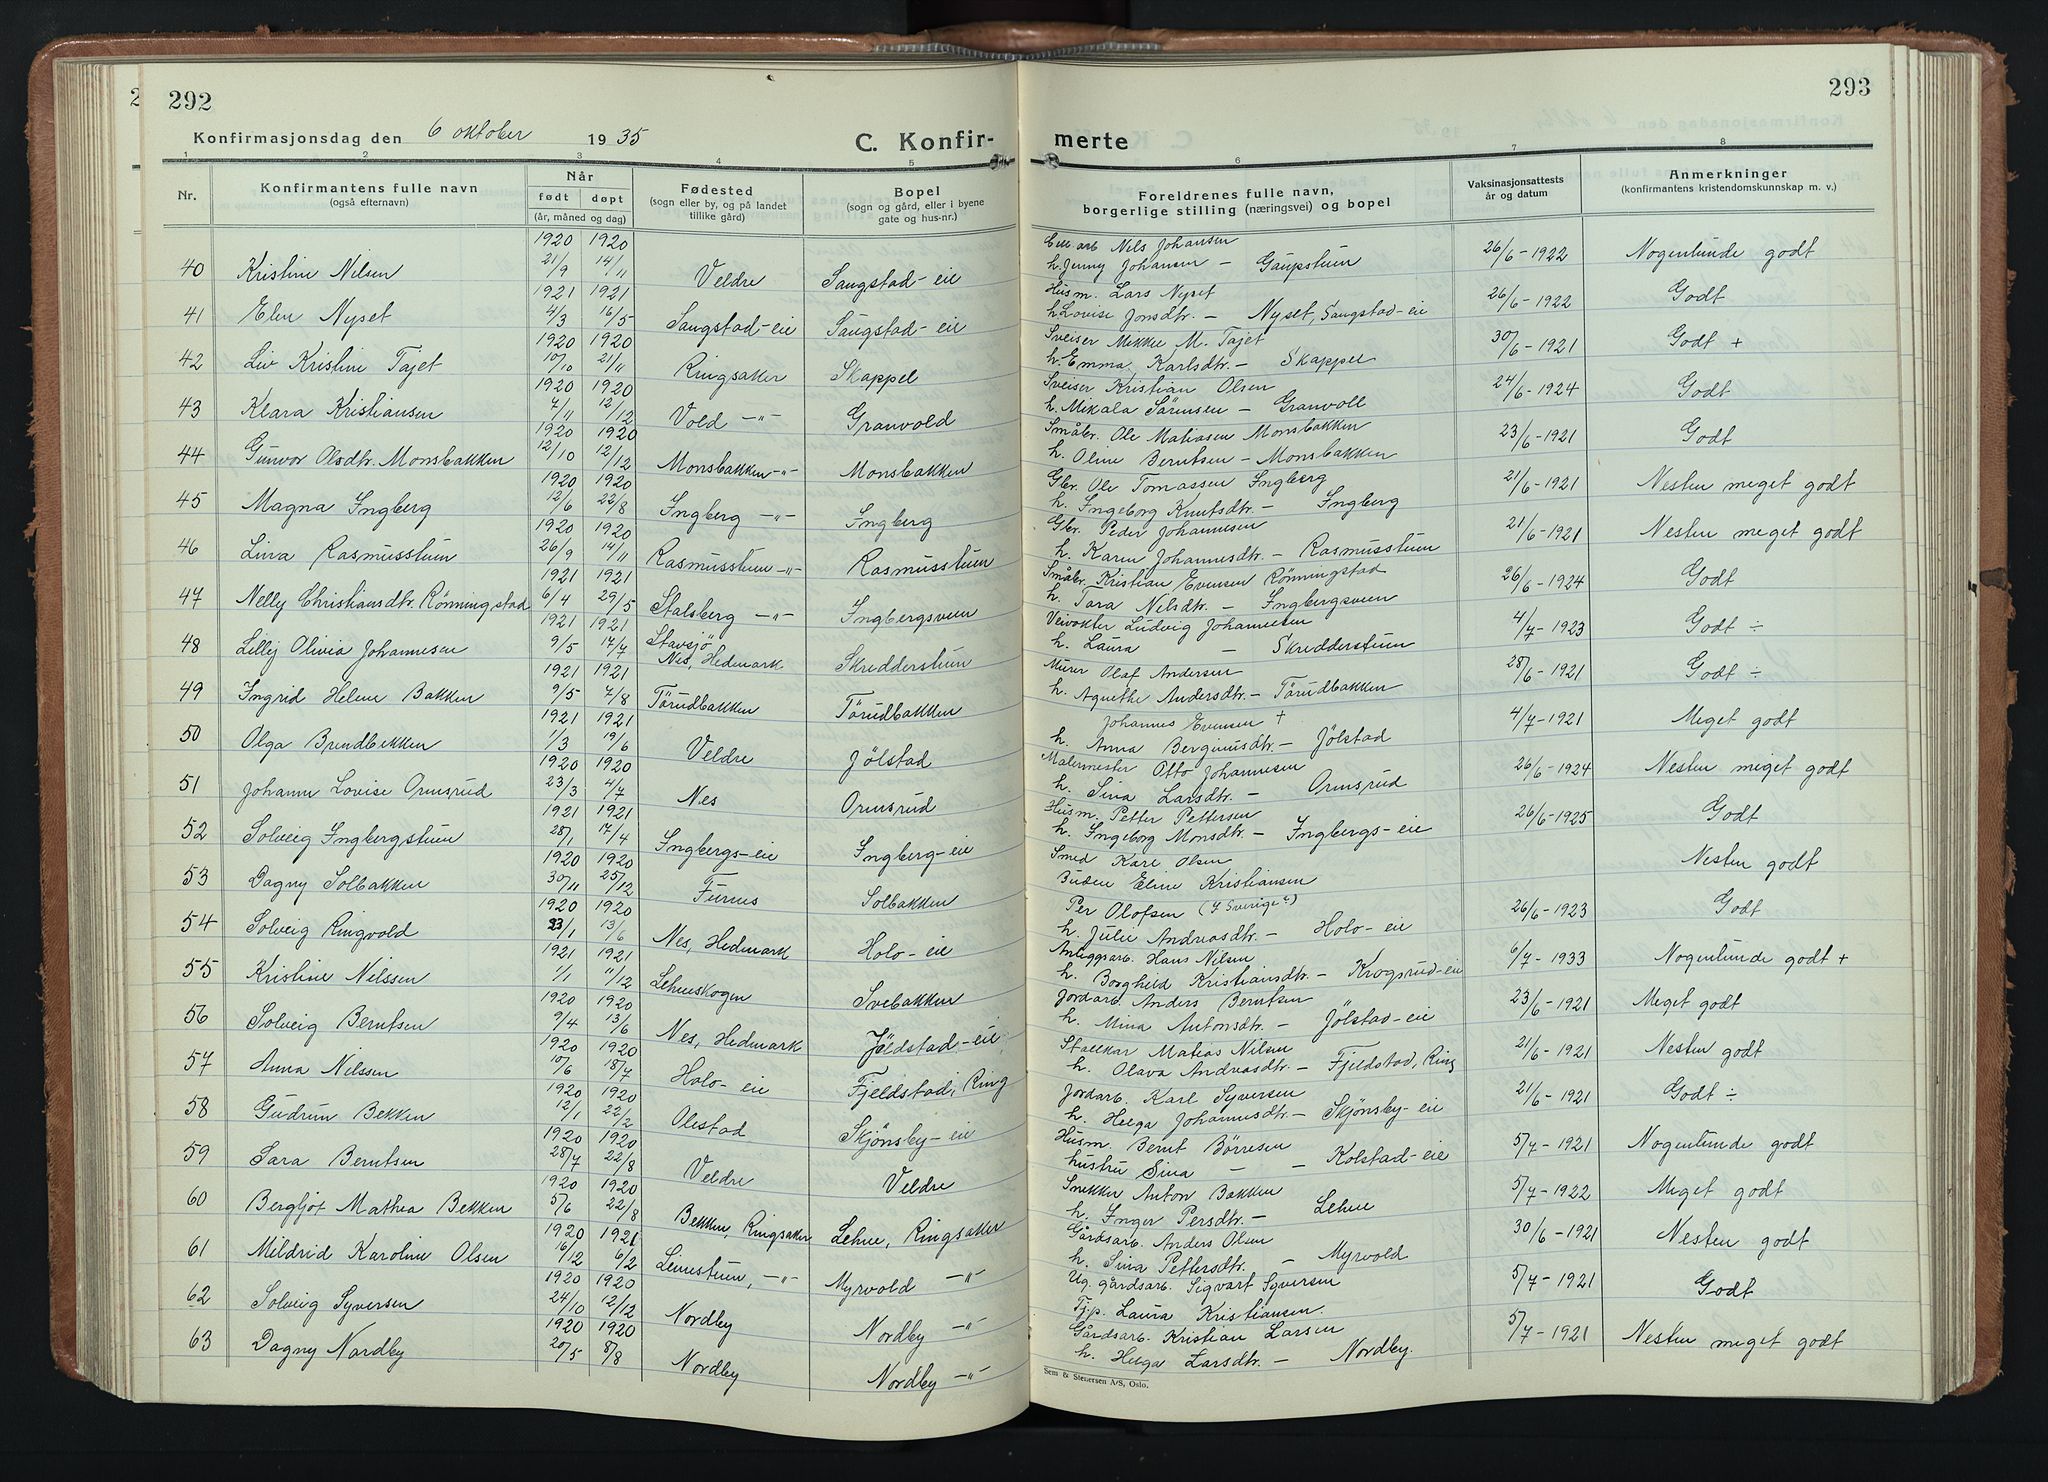 292
Konfirmasjonsdag den 6 oktober 1935
C. Konfir-
1 2 3 4 5
Nr.
Konfirmantens fulle navn
(også efternavn)
Når
født døpt
(år, måned og dag)
Fødested
(sogn eller by, og på landet
tillike gård)
Bopel
(sogn og gård, eller i byene
gate og hus-nr.)
1920 1920
40 Kristine Nilsen 21/9 14/11 Veldre Saugstad-eie
1921 1921
41 Elen Nyset 4/3 16/5 Saugstad-eie Saugstad-eie
1920 1920
42 Liv Kristine Tajet 10/10 21/11 Ringsaker Skappel
1920 1920
43 Klara Kristiansen 7/11 12/12 Vold -"- Granvold
1920 1920
44 Gunvor Olsdtr. Monsbakken 12/10 12/12 Monsbakken -"- Monsbakken
1920 1920
45 Magna Ingberg 12/6 22/8 Ingberg -"- Ingberg
1920 1920
46 Lina Rasmusstuen 26/9 14/11 Rasmusstuen -"- Rasmusstuen
1921 1921
47 Nelly Christiansdtr. Rønningstad 6/4 29/5 Stalsberg -"- Ingbergsveen
1921 1921
48 Lilly Olivia Johannesen 9/5 17/7 Stavsjö Nes, Hedmark Skredderstuen
1921 1921
49 Ingrid Helene Bakken 9/5 7/8 Törudbakken Törudbakken
1921 1921
50 Olga Brendbekken 1/3 19/6 Veldre Jølstad
1920 1920
51 Johanne Lovise Ormsrud 23/3 4/7 Nes Ormsrud
1921 1921
52 Solveig Ingbergstuen 28/1 17/4 Ingbergs-eie Ingberg-eie
1920 1920
53 Dagny Solbakken 30/11 25/12 Furnes Solbakken
1920 1920
54 Solveig Ringvold 23/1 13/6 Nes, Hedmark Holo-eie
1921 1921
55 Kristine Nilssen 1/1 11/12 Lehneskogen Svebakken
1920 1920
56 Solveig Berntsen 9/4 13/6 Nes, Hedmark Jöldstad-eie
1920 1920
57 Anna Nilssen 10/6 18/7 Holo-eie Fjeldstad, Ring
1920 1920
58 Gudrun Bekken 12/1 22/2 Olestad Skjønsby-eie
1920 1920
59 Sara Berntsen 28/7 22/8 Veldre Veldre
1920 1920
60 Bergljot Mathea Bekken 5/6 22/8 Bekken, Ringsaker Lehne, Ringsaker
1920 1921
61 Mildrid Karoline Olsen 16/12 6/2 Linestuen, -"- Myrvold -"-
1920 1920
62 Solveig Syversen 24/10 12/12 Nordby Nordby -"-
1920 1920
63 Dagny Nordby 20/5 8/8 Nordby Nordby -"-
293
merte
6 7 8
Foreldrenes fulle navn,
borgerlige stilling (næringsvei) og bopel
Vaksinasjonsattests
år og datum
Anmerkninger
(konfirmantens kristendomskunnskap m. v.)
Cell arb Nels Johansen
h. Jenny Johansen - Gaupstuen 26/6-1922 Nogenlunde godt
Husm. Lars Nyset
h. Lovise Jonsdtr. - Nyset, Saugstad-eie 26/6-1922 Godt
Sveiser Mikkel M. Tajet
h. Emma Karlsdtr. - Skappel 30/6-1921 Godt +
Sveiser Kristian Olsen
h. Mikala Sørensen - Granvoll 24/6-1924 Godt
Småbr. Ole Matiasen Monsbakken
h. Oline Berntsen - Monsbakken 23/6-1921 Godt
Gbr. Ole Tomassen Ingberg
h. Ingeborg Knutsdtr. - Ingberg 21/6-1921 Nesten meget godt
Gbr. Peder Johannesen
h. Karen Johannesdtr. - Rasmusstuen 21/6-1921 Nesten meget godt
Småbr. Kristian Evensen Rønningstad
h. Tara Nilsdtr. - Ingbergsveen 26/6-1924 Godt
Veivokter Ludvig Johannesen
h. Laura - Skredderstuen 4/7-1923 Godt ÷
Murer Olaf Andersen
h. Agnethe Andersdtr. - Törudbakken 28/6-1921 Godt ÷
Johannes Evensen †
h. Anna Berginusdtr. - Jølstad 4/7-1921 Meget godt
Malermester Otto Johannesen
h. Sina Larsdtr. - Ormsrud 26/6-1924 Nesten meget godt
Husm. Petter Pettersen
h. Ingeborg Monsdtr. - Ingbergs-eie 26/6-1925 Godt
Smed Karl Olsen
Buden Eline Kristiansen Nesten godt
Per Olofsen (I Sverige?)
h. Julie Andreasdtr. - Holo-eie 26/6-1923 Godt
Anleggsarb. Hans Nilsen
h. Borghild Kristiansdtr. - Krogsrud-eie 6/7-1933 Nogenlunde godt +
Jordarb. Anders Berntsen
h. Mina Antonsdtr. - Jølstad-eie 23/6-1921 Meget godt
Stallkar Matias Nilsen
h. Olava Andreasdtr. - Fjeldstad, Ring 21/6-1921 Nesten godt
Jordarb. Karl Syversen
h. Helga Johannesdtr. - Skjønsby-eie 21/6-1921 Godt ÷
Husm. Bernt Børresen
hustru Sina - - Kolstad-eie 5/7-1921 Nogenlunde godt
Snekker Anton Bakken
h. Inger Persdtr. - Lehne 5/7-1922 Meget godt
Gårdsarb. Anders Olsen
h. Sina Pettersdtr. - Myrvold 30/6-1921 Nesten godt
Ug. gårdsarb. Sigvart Syversen
Tjp. Laura Kristiansen. 5/7-1921 Godt
Gårdsarb. Kristian Larsen
h. Helga Larsdtr. - Nordby. 5/7-1921 Nesten meget godt
Sem & Stenersen A/S, Oslo.